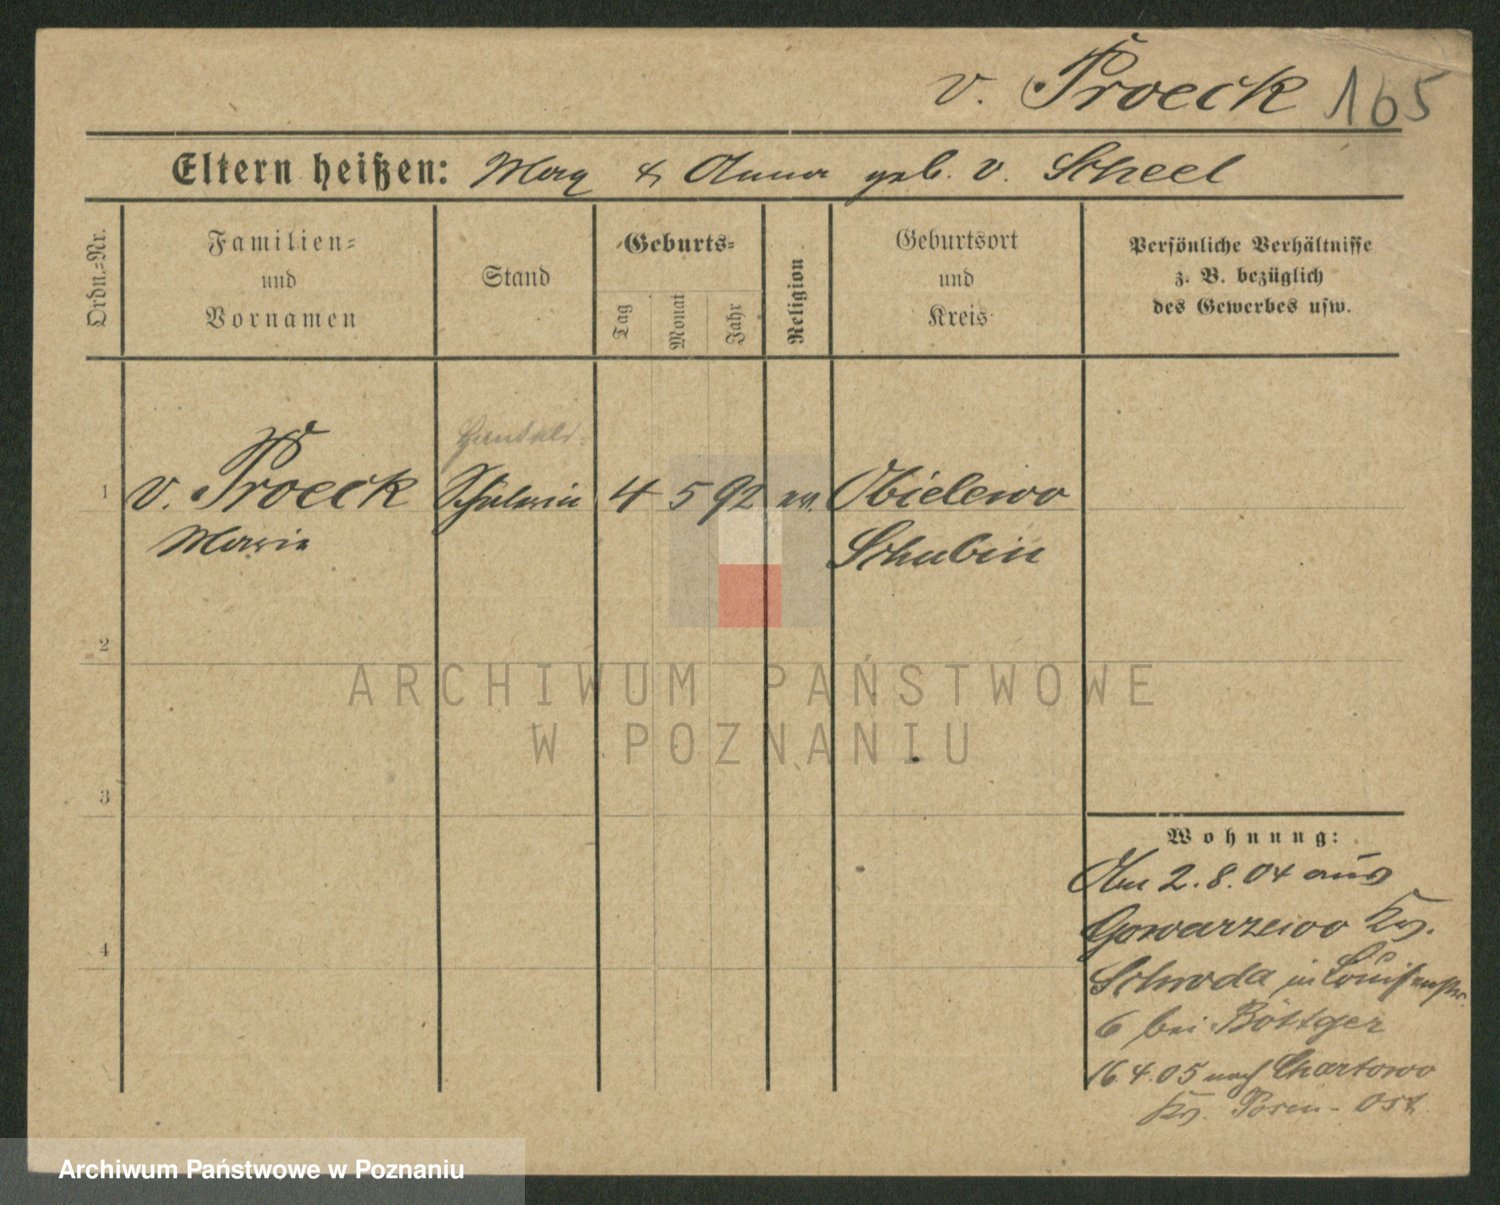 v. Proeck 165
Eltern heißen: Max & Anna geb. v. Scheel
Ordn.-Nr.
Familien-
und
Vornamen
Stand
Geburts-
Tag
Monat
Jahr
Religion
Geburtsort
und
Kreis
Persönliche Verhältnisse
z. B. bezüglich
des Gewerbes usw.
Handels-
1 v. Proeck Schülerin 4 5 92 ev. Obielewo
Marie Schubin
2
3
4
ARCHIWUM PAŃSTWOWE
W POZNANIU
Wohnung:
Am 2.8.04 aus
Gowarzewo Krs.
Schroda in Louisenstr.
6 bei Böttger
16.4.05 nach Chartowo
Krs. Posen-Ost
Archiwum Państwowe w Poznaniu